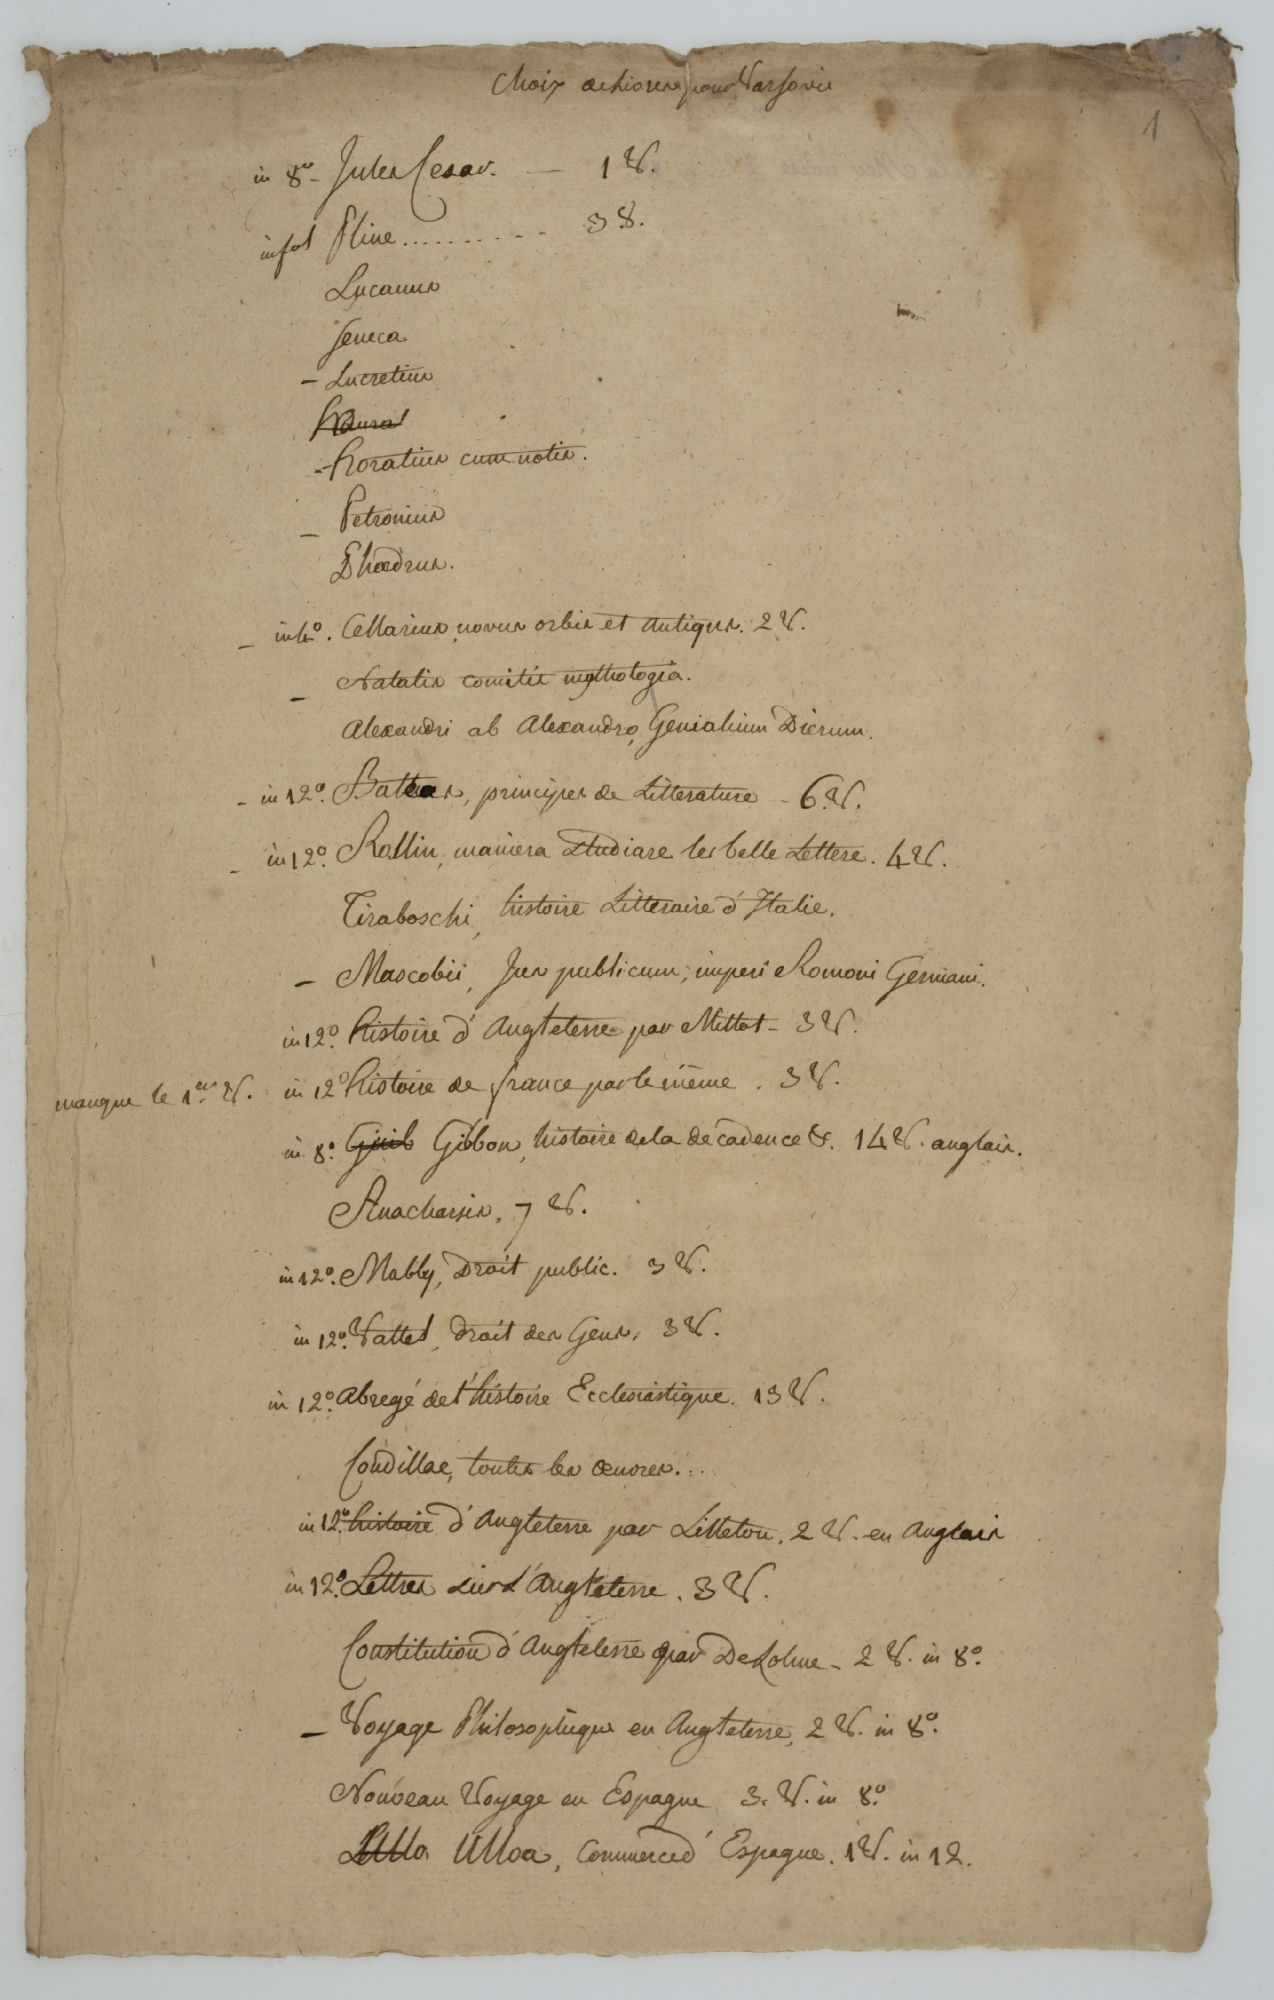 Choix de Livres pour Varsovie
1
in 8º - Jules Cesar. — 1 V.
in fol Pline .......... 3 V.
Lucanus
Seneca
- Lucretius
- horatius cum notis.
- Petronius
Phœdrus.
- in 4º. Cellarius, novus orbis et antiquus. 2 V.
- Natalis comitis mythologia.
Alexandri ab Alexandro, Genialium Dierum.
- in 12º. Batteux, principes de Litterature - 6 V.
- in 12º. Rollin, maniera studiare les belle Lettere. 4 V.
Tiraboschi, histoire Litteraire d'Italie.
- Mascobii, Jus publicum, imperi Romani Germani.
in 12º. histoire d'Angleterre par Millot - 3 V.
manque le 1er V. in 12º histoire de france par le même. 3 V.
in 8º. Guib Gibbon, histoire de la decadence &. 14 V. anglais.
Anacharsis, 7 V.
in 12º. Mably, Droit public. 3 V.
in 12º. Vattel, droit des Gens, 3 V.
in 12º. abregé de l'histoire Ecclesiastique. 13 V.
Condillac, toutes les œuvres...
in 12º. histoire d'Angleterre par Litleton, 2 V. en Anglais
in 12º. Lettres sur l'Angleterre. 3 V.
Constitution d'Angleterre par De Lolme - 2 V. in 8º.
- Voyage Philosophique en Angleterre, 2 V. in 8º.
Nouveau Voyage en Espagne 3. V. in 8º.
Ulloa, Commerce d'Espagne. 1 V. in 12.